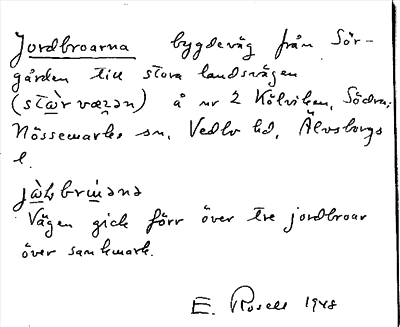 Jordbroarna bygdeväg från Sör-
gården till stora landsvägen
(stὼr væʒən) å nr 2 Kölviken, Södra
Nössemarks sn, Vedbo hd, Älvsborgs
l.
jὼḷbrώənə
Vägen gick förr över tre jordbroar
över sankmark.
E. Rosell 1948